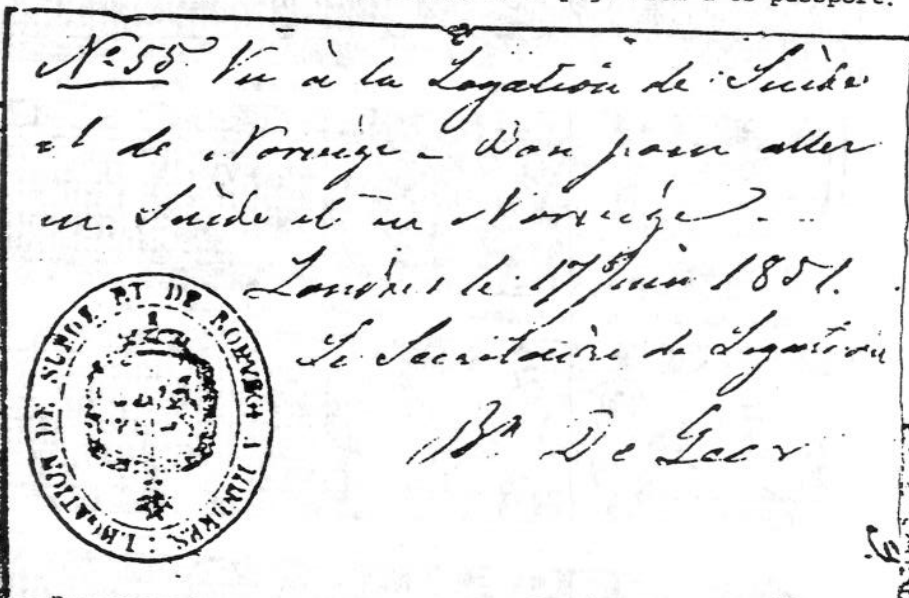 passport.
Nº 55 Vu à la Légation de Suède
et de Norvège - Bon pour aller
en Suède et en Norvège. -
Londres le 17 juin 1851.
Le Secrétaire de Légation
Bn De Geer
LEGATION DE SUEDE ET DE NORVEGE A LONDRES